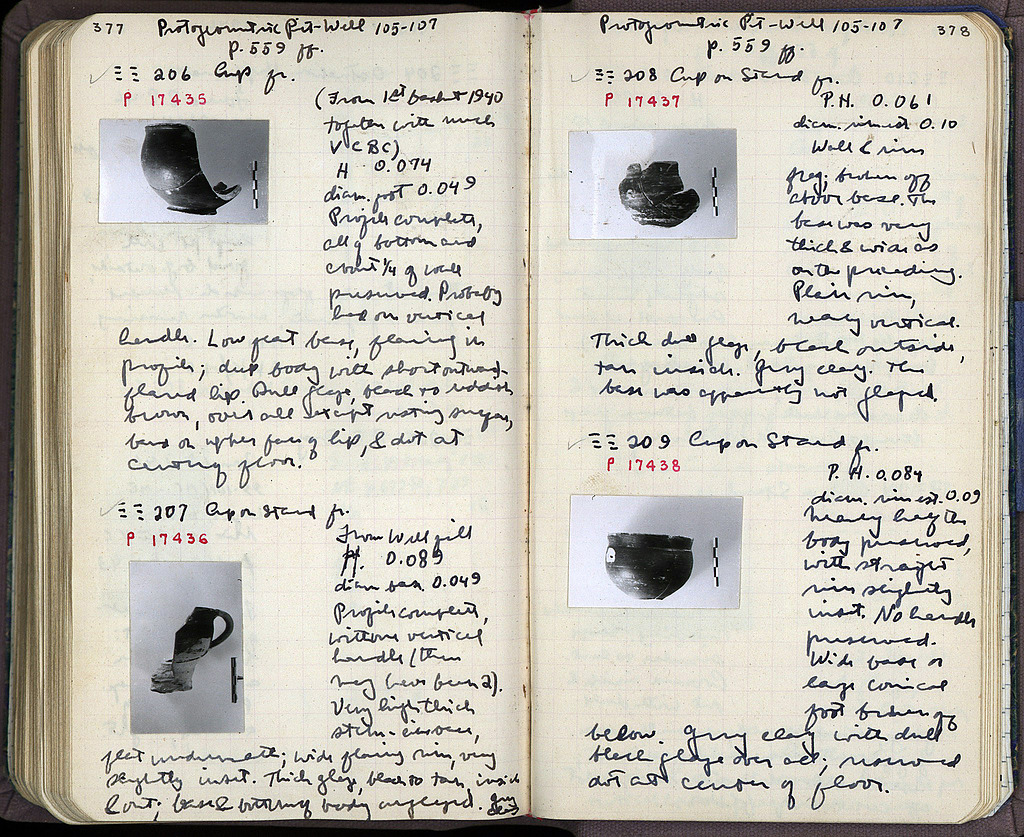 377
Protogeometric Pit-Well 105-107
p. 559 ff.
ΞΞ 206 Cup fr.
P 17435
(From 1st basket 1940
together with much
V C BC)
H 0.074
diam. foot 0.049
Profile complete,
all of bottom and
about 1/4 of wall
preserved. Probably
had one vertical
handle. Low flat base, flaring in
profile; deep body with short outward-
flared lip. Dull glaze, black to reddish
brown, over all except resting surface,
band on upper face of lip, & dot at
center of floor.
ΞΞ 207 Cup on Stand fr.
P 17436
From Well fill
H. 0.089
diam. base 0.049
Profile complete,
with one vertical
handle (there
may have been 2).
Very high thick
stem-
flat underneath; wide flaring rim, very
slightly inset. Thick glaze, black to tan, inside
& out; base & bottom of body unglazed. Gray
clay
Protogeometric Pit-Well 105-107
378
p. 559 ff.
ΞΞ 208 Cup on Stand fr.
P 17437
P.H. 0.061
diam. rim est 0.10
Wall & rim
frag; broken off
above base. The
base was very
thick & wide as
on the preceding.
Plain rim,
nearly vertical.
Thick dull glaze, black outside,
tan inside. Gray clay. The
base was apparently not glazed.
ΞΞ 209 Cup on Stand fr.
P 17438
P.H. 0.084
diam. rim est. 0.09
Nearly half the
body preserved,
with straight
rim slightly
inset. No handle
preserved.
Wide base or
large conical
foot broken off
below. Gray clay with dull
black glaze over all; reserved
dot at center of floor.